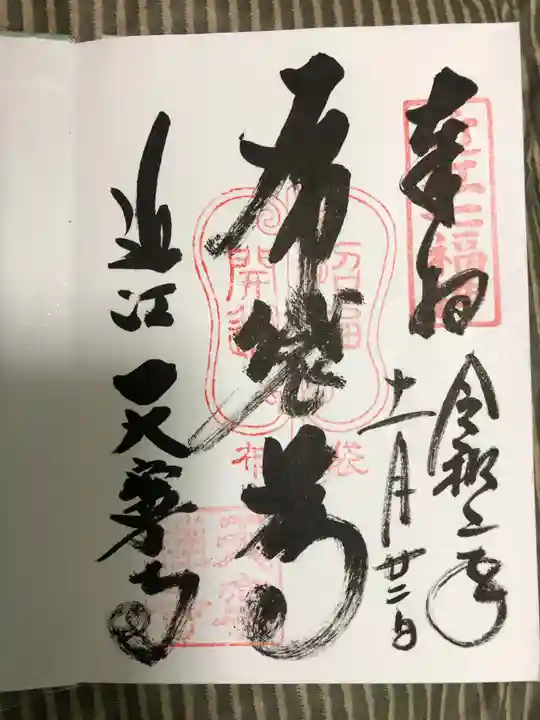 奉拝
令和二年
十一月廿二日
布袋尊
招福
開運
布袋
近江 天寧寺
天寧